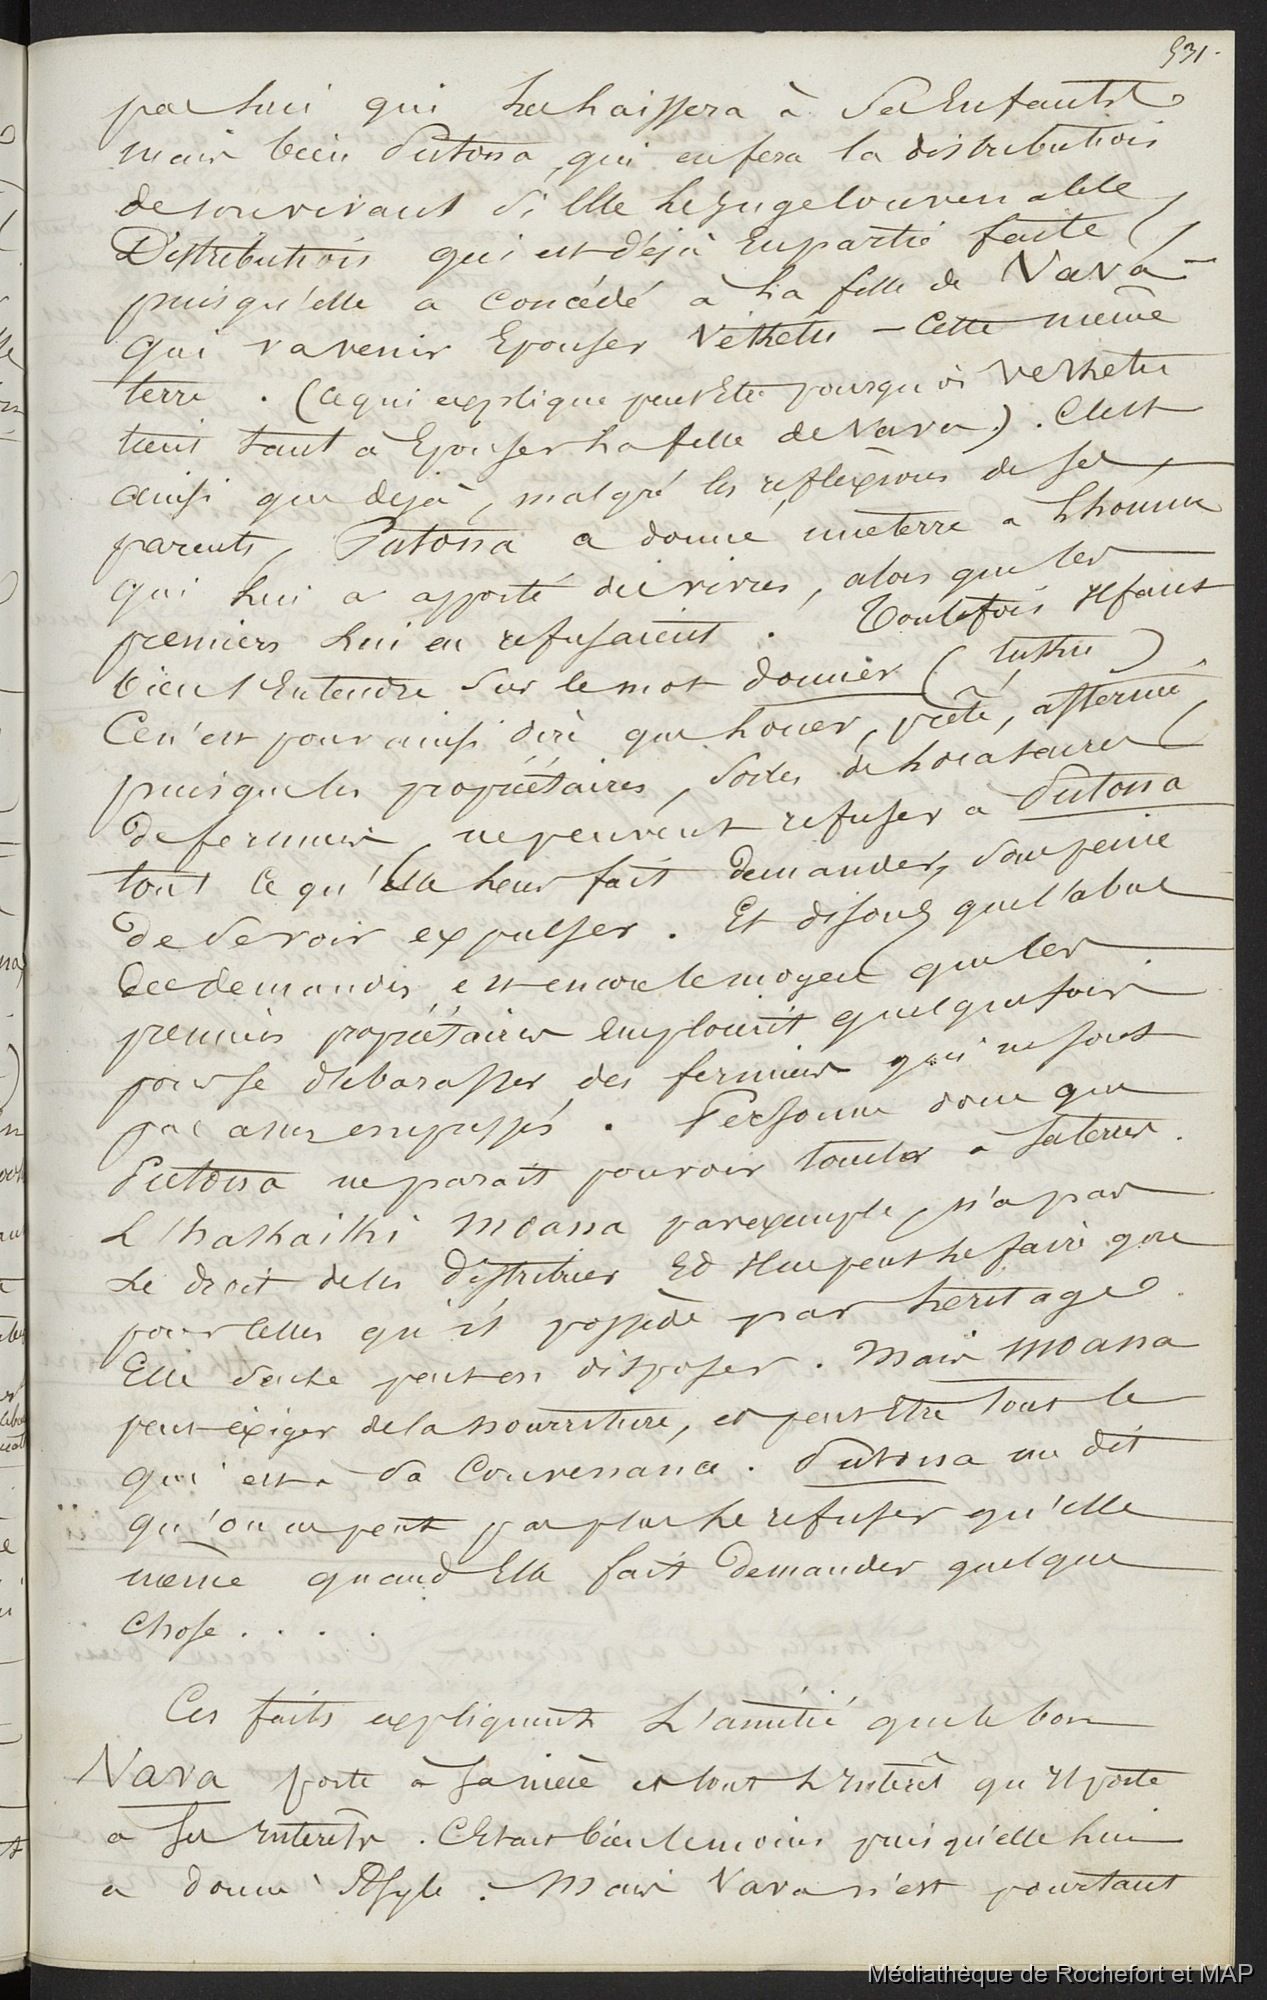 531.
pas lui qui la laissera à ses Enfants
mais bien Putona, qui en fera la distribution
de son vivant si Elle le juge convenable,
Distribution qui est déjà En partie faite
puisqu'elle a concédé à la fille de Nava
qui va venir Epouser Veketu – Cette même
terre . (Ce qui explique peut Etre pourquoi Veketu
tient tant à Epouser la fille de Nava) . C'est
ainsi que déjà, malgré les réflexions de ses
parents, Putona a donné une terre à l'homme
qui lui a apporté des vivres, alors que les
premiers lui en refusaient . Toutefois Il faut
bien s'Entendre sur le mot donner ( )
Ce n'est pour ainsi dire que louer, prêté, affermé
puisque les propriétaires, sortes de locataires
de fermiers, ne peuvent refuser à Putona
tout ce qu'Elle leur fait Demander, sous peine
de se voir expulser . Et disons que l'abus
des demandes, est encore le moyen que les
premiers propriétaires emploient quelques fois
pour se débarasser des fermiers qui ne sont
pas assez empressés . Personne donc que
Putona ne paraît pouvoir toucher à ses terres.
L'hakaiki Moana par exemple, n'a pas
le droit de les distribuer Et Il ne peut le faire que
pour celles qu'il possède par héritage.
Elle seule peut en disposer . Mais Moana
peut exiger de la nourriture, et peut Etre tout ce
qui est à sa Convenance . Putona me dit
qu'on ne peut pas plus le refuser qu'elle
même quand Elle fait Demander quelque
chose . . . .
Ces faits expliquent L'amitié que le bon
Nava porte à sa nièce et tout L'Interêt qu'Il porte
à ses Interêts . C'Etait bien le moins puisqu'elle lui
a donné Asyle . Mais Nava n'est pourtant
Médiathèque de Rochefort et MAP